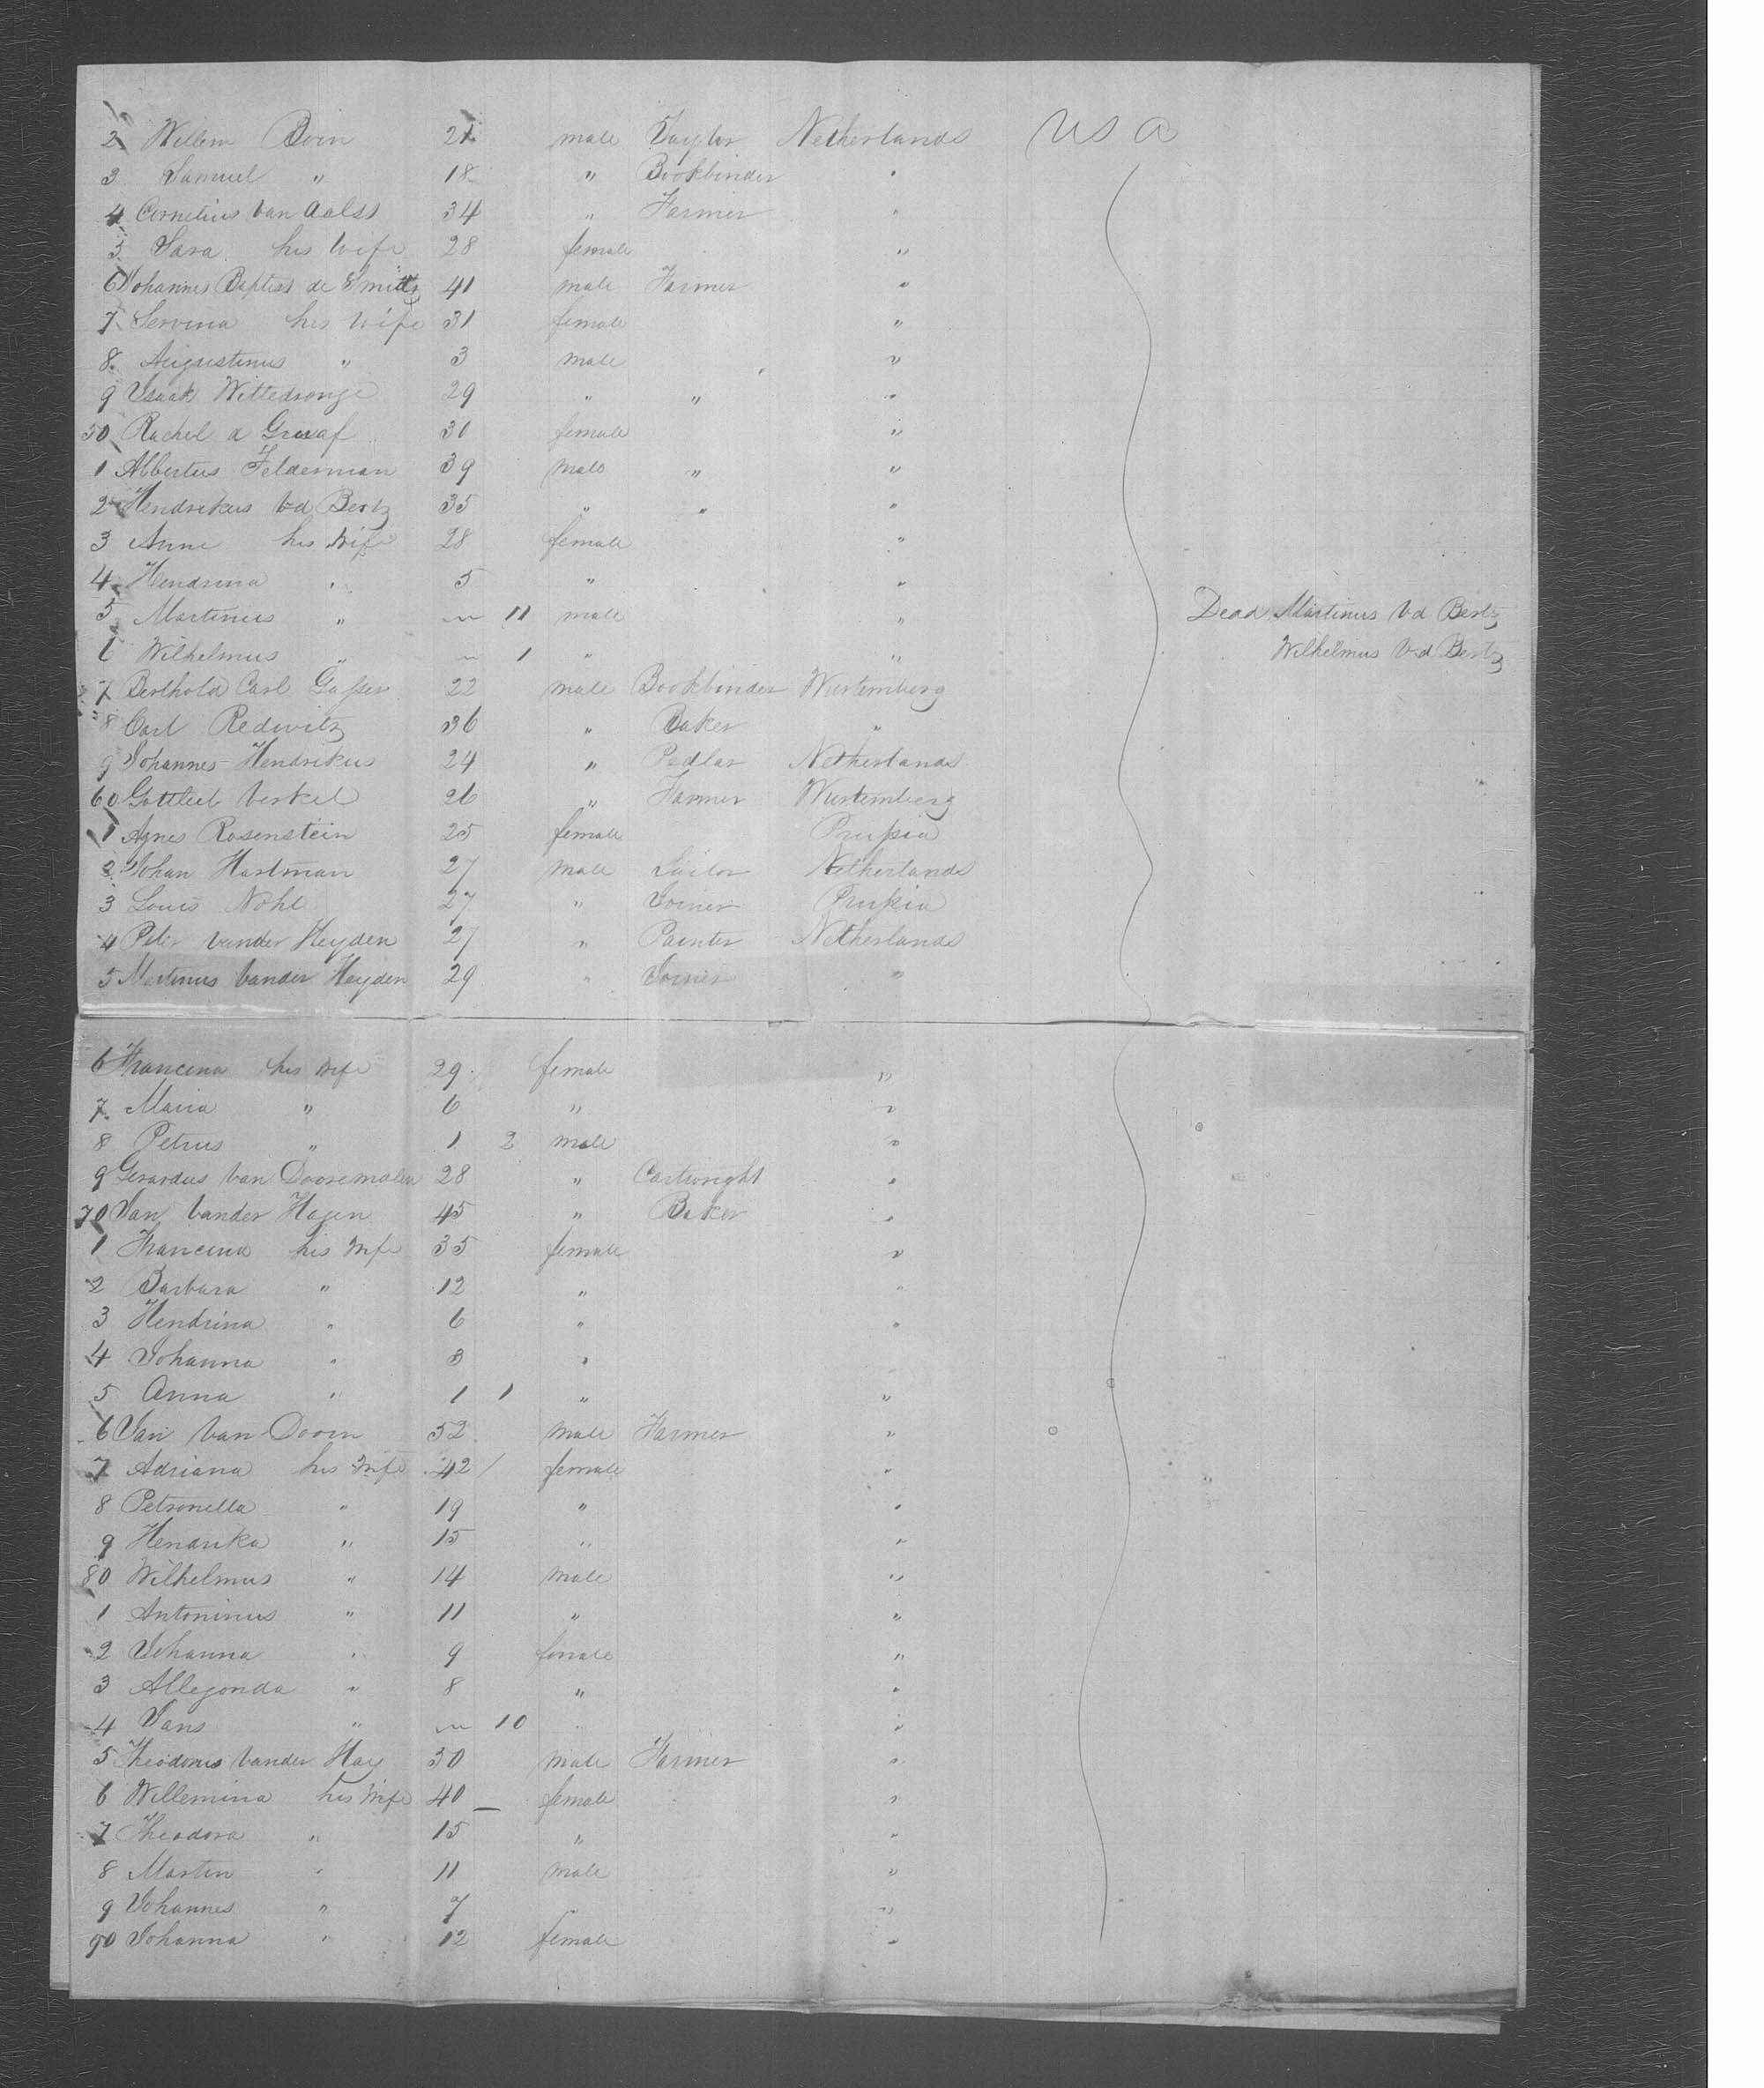 2 Willem Boin 21 male Taylor Netherlands USA
3 Samuel " 18 " Bookbinder "
4 Cornelius van Aalst 34 " Farmer "
5 Sara his wife 28 female "
6 Johannes Baptist de Smitts 41 male Farmer "
7 Servina his wife 31 female "
8 Augustinus " 3 male "
9 Isaak Wittedronge 29 " " "
50 Rachel d Graaf 31 female "
1 Albertus Felderman 39 male " "
2 Hendrikus vd Bertz 35 " " "
3 Anne his wife 28 female "
4 Hendrina " 5 " "
5 Martinus " ~ 11 male " Dead Martinus vd Bertz
6 Wilhelmus " ~ 1 " " Wilhelmus vd Bertz
7 Berthold Carl Gasser 22 male Bookbinder Wurtemberg
8 Carl Redwitz 36 " Baker "
9 Johannes Hendrikus 24 " Pedlar Netherlands
60 Gottlieb Verkel 26 " Farmer Wurtemberg
1 Agnes Rosenstein 25 female Prussia
2 Johan Hartman 27 male Sailor Netherlands
3 Louis Nohl 27 " Joiner Prussia
4 Peter vander Heyden 27 " Painter Netherlands
5 Martinus vander Heyden 29 " Joiner "
6 Francina his wife 29 female "
7 Maria " 6 " "
8 Petrus " 1 2 male "
9 Gerardus van Dooremalen 28 " Cartwright "
70 Jan vander Hagen 45 " Baker "
1 Francina his wife 35 female "
2 Barbara " 12 " "
3 Hendrina " 6 " "
4 Johanna " 3 "
5 Anna " 1 1 " "
6 Jan van Doorn 52 male Farmer "
7 Adriana his wife 42 female "
8 Petronella " 19 " "
9 Hendrika " 15 " "
80 Wilhelmus " 14 male "
1 Antonius " 11 " "
2 Johanna " 9 female "
3 Allegonda " 8 " "
4 Jans " ~ 10 " "
5 Theodorus vander Hay 50 male Farmer "
6 Willemina his wife 40 female "
7 Theodora " 15 " "
8 Martin " 11 male "
9 Johannes " 7 "
90 Johanna " 12 female "